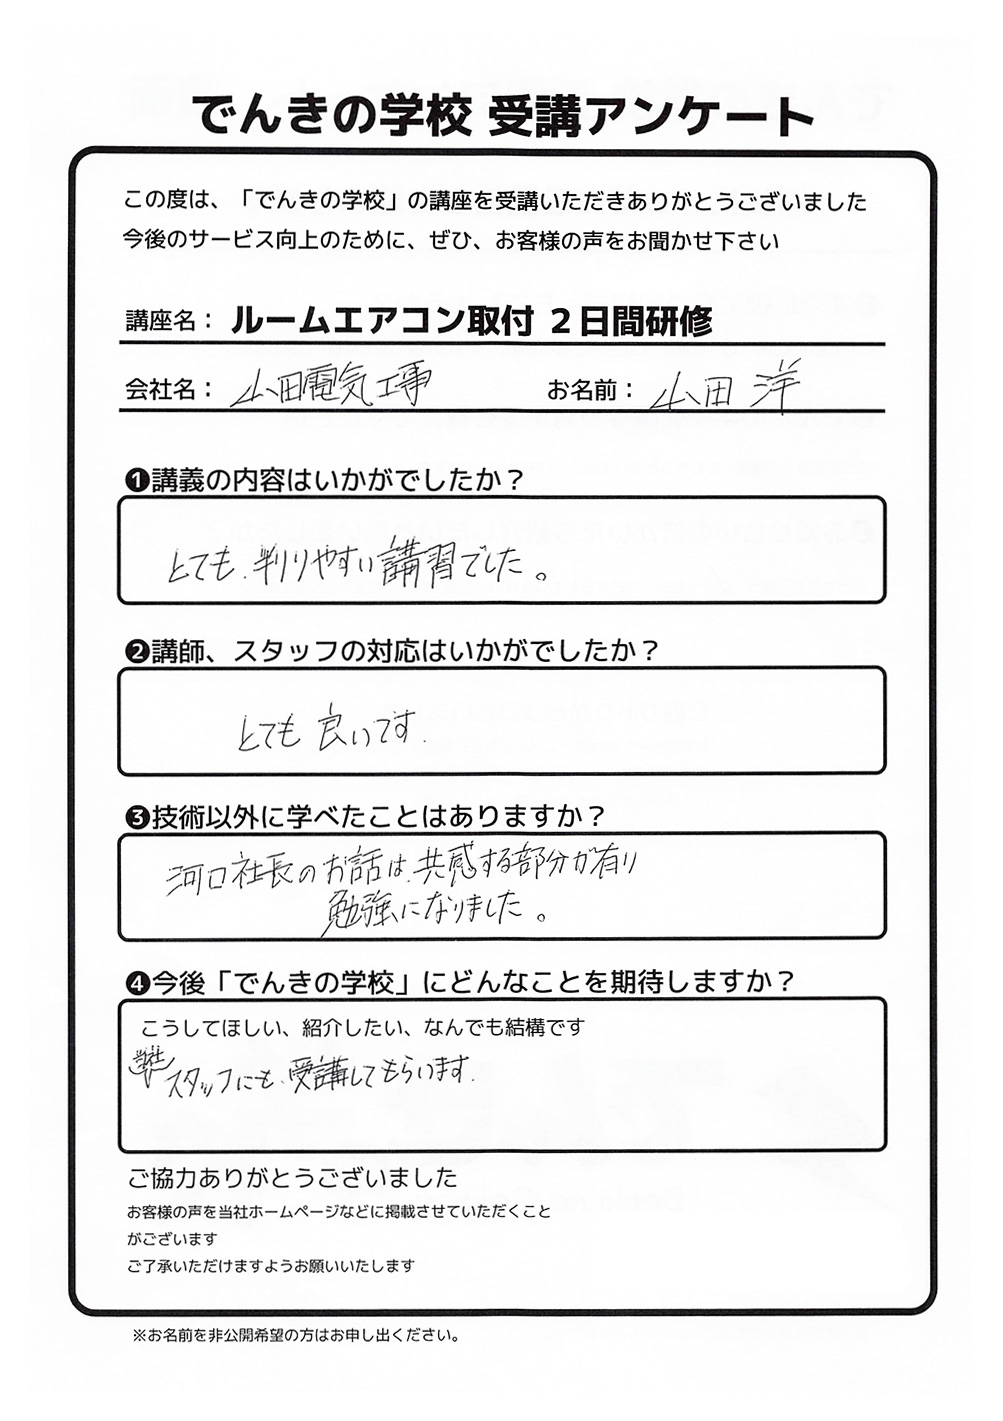 でんきの学校 受講アンケート
この度は、「でんきの学校」の講座を受講いただきありがとうございました
今後のサービス向上のために、ぜひ、お客様の声をお聞かせ下さい
講座名： ルームエアコン取付 ２日間研修
会社名： 山田電気工事 お名前： 山田 洋
❶講義の内容はいかがでしたか？
とても、判りやすい講習でした。
❷講師、スタッフの対応はいかがでしたか？
とても 良いです.
❸技術以外に学べたことはありますか？
河口社長のお話は、共感する部分が有り
勉強になりました。
❹今後「でんきの学校」にどんなことを期待しますか？
こうしてほしい、紹介したい、なんでも結構です
スタッフにも、受講してもらいます.
ご協力ありがとうございました
お客様の声を当社ホームページなどに掲載させていただくこと
がございます
ご了承いただけますようお願いいたします
※お名前を非公開希望の方はお申し出ください。